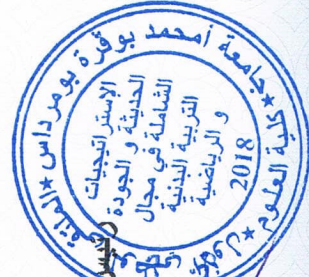 جامعة أمحمد بوقرة بومرداس
كلية العلوم
الإستراتيجيات
الحديثة و الجودة
الشاملة في مجال
التربية البدنية
و الرياضية
2018